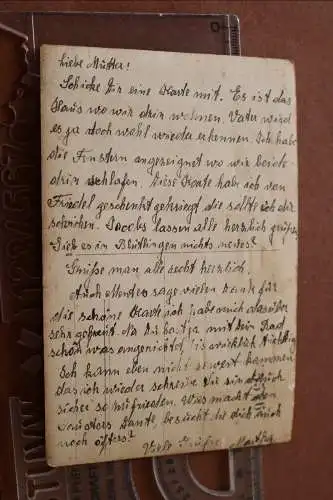 Liebe Mutter!
Schicke dir eine Karte mit. Es ist das
Haus wo wir drin wohnen. Vater wird
es ja doch wohl wieder erkennen. Ich habe
die Finstern angezeignet wo wir beide
drin schlafen. Diese Karte hab ich von
Friedel geschenkt gekriegt die sollte ich dir
schicken. Jacobs lassen alle herzlich grüßen
Gieb es in nichts neues?
Grüße man alle recht herzlich.
Auch sage vielen Dank für
die schöne Karte ich habe mich darüber
sehr gefreut. Na du hast ja mit dein Rad
schön was angerichtet
Ich kann eben nicht so weit kommen
das ich wieder schreibe. Ihr sind auch
sicher so zufrieden. Was macht den
Tante, besucht sie dich auch
noch öfters?
Viele Grüße